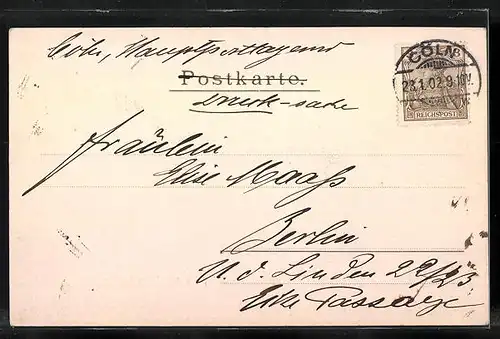 Cöln, Hauptpostlagernd
Postkarte.
Druck-sache
CÖLN
23.1.02.9-10V.
REICHSPOST
Fräulein
Elise Maass
Berlin
U. d. Linden 22/23
Ecke Passage